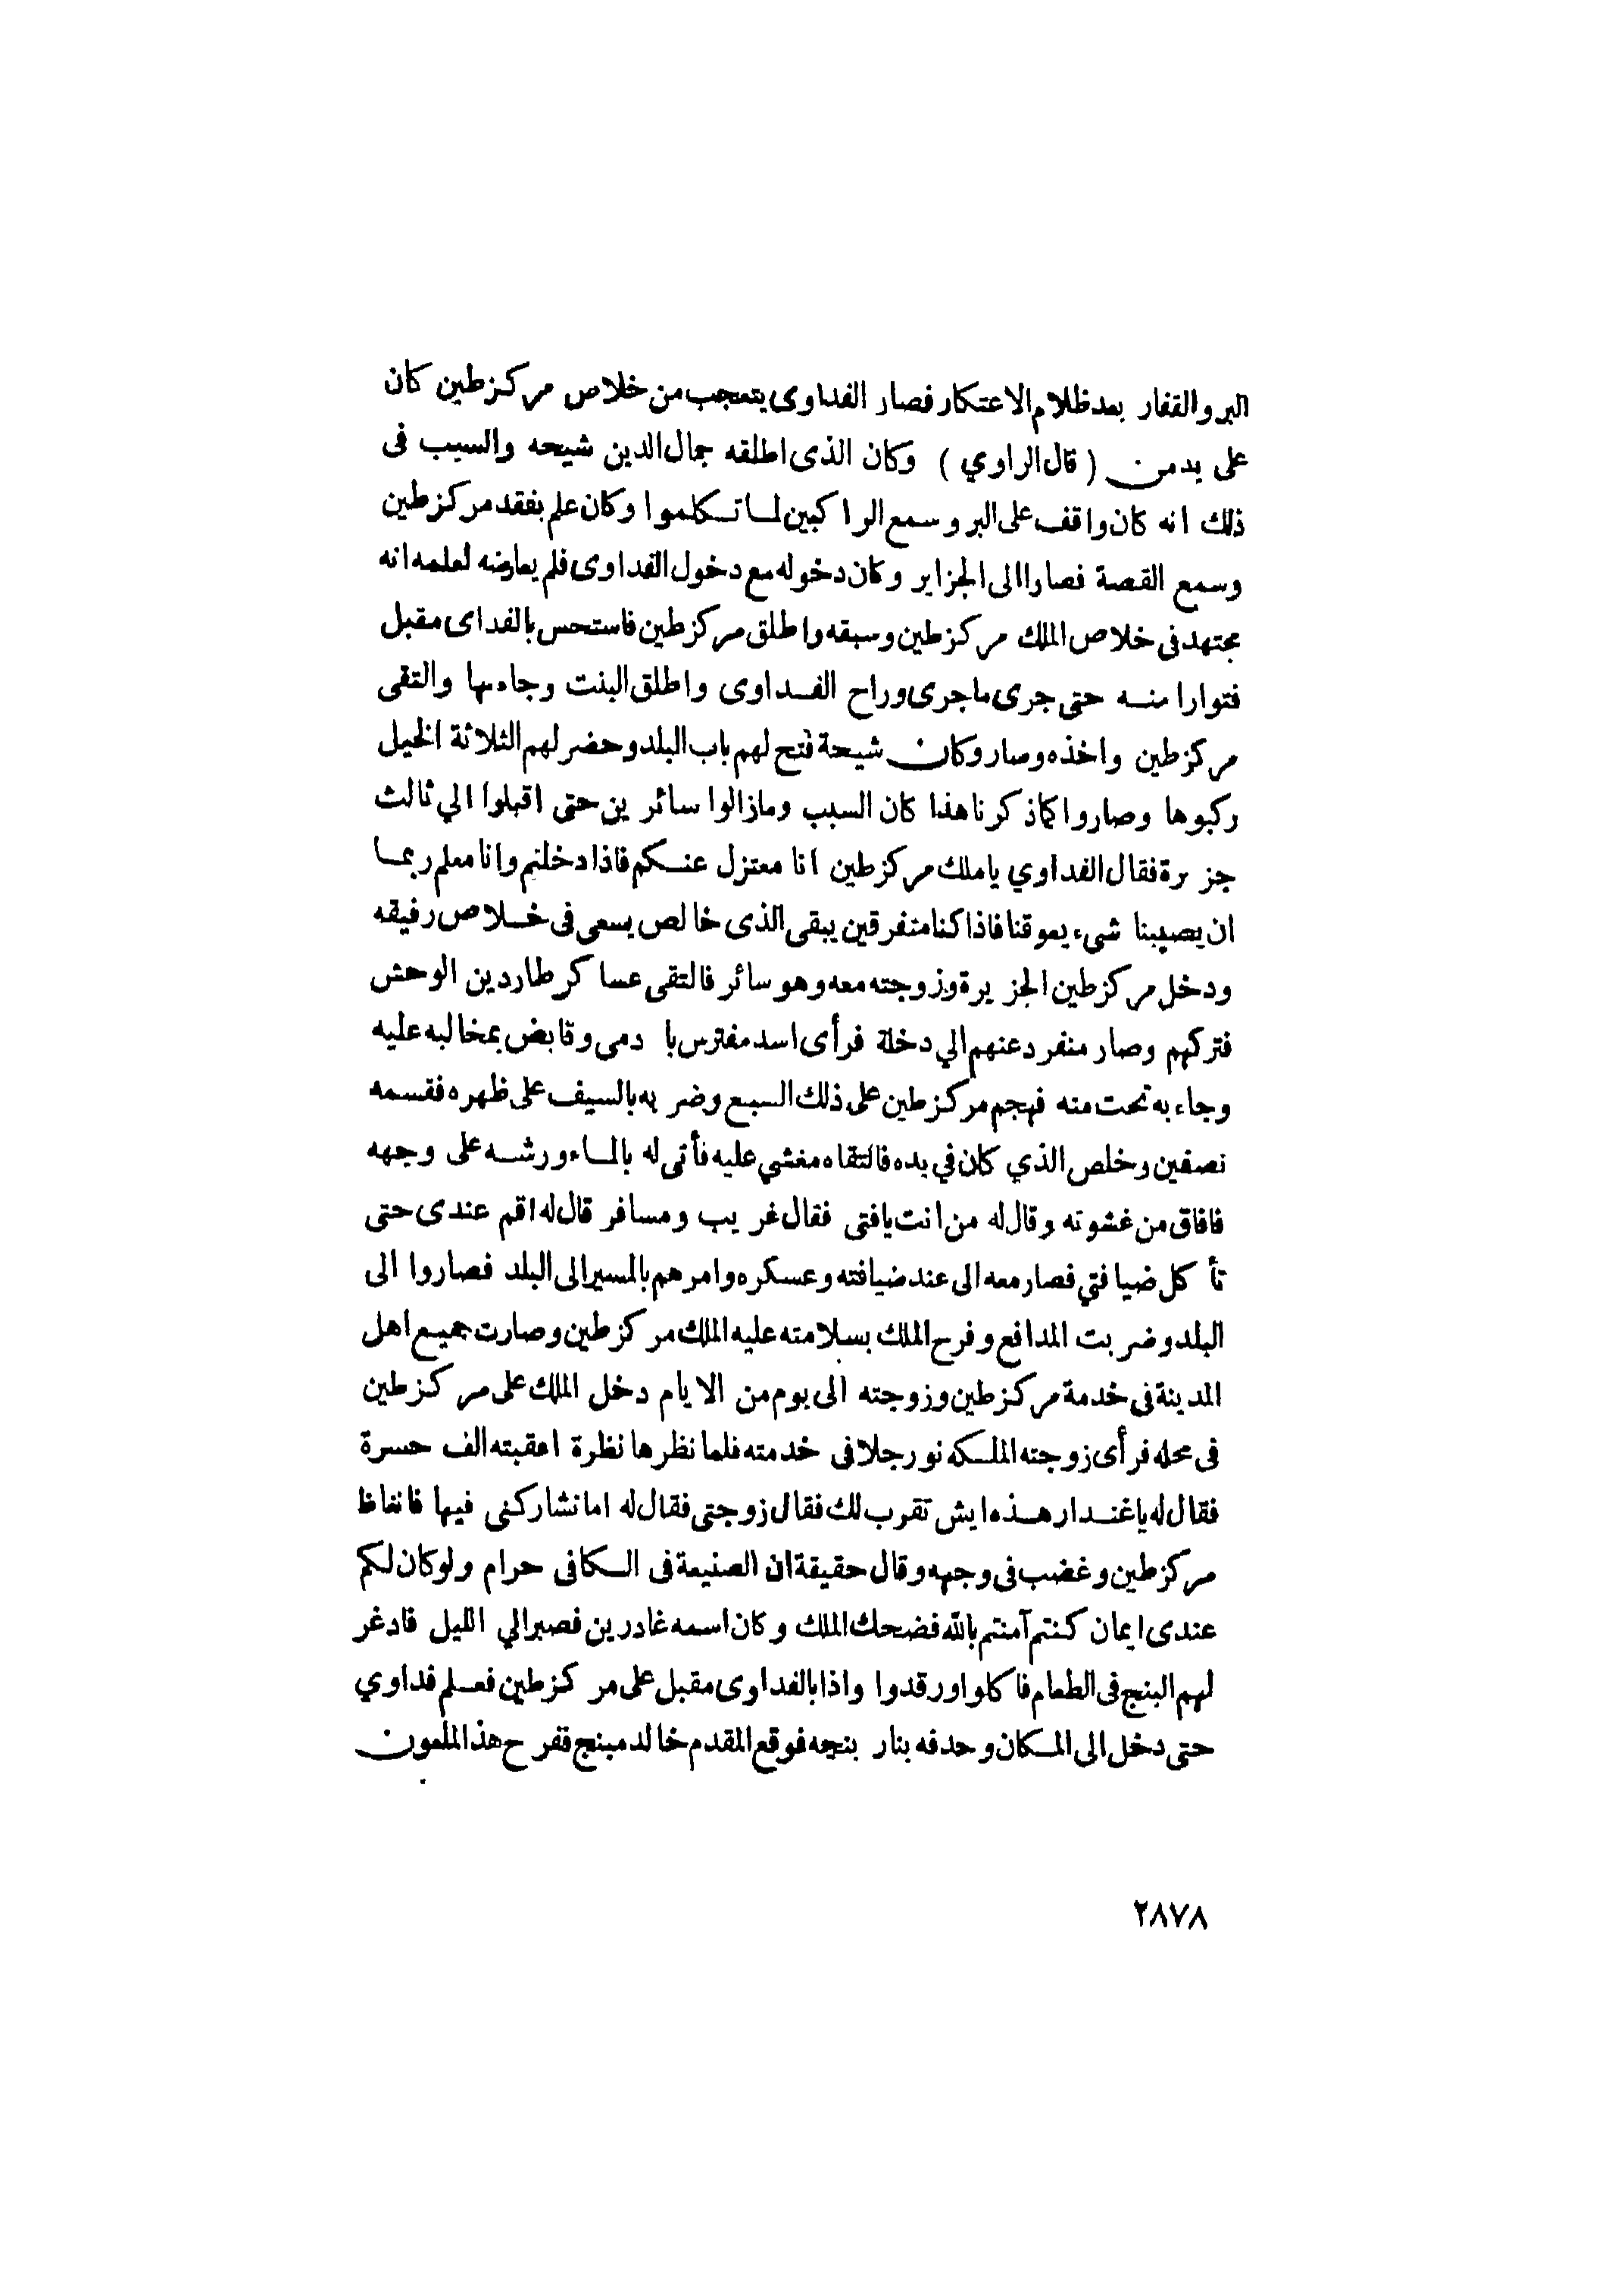 البر والقفار بعد ظلام الاعتكار فصار الفداوى يتعجب من خلاص مركزطين كان
على يد من ( قال الراوي ) وكان الذى اطلقه جمال الدين شيحه والسبب فى
ذلك انه كان واقف على البر وسمع الراكبين لما تكلموا وكان علم بفقد مركزطين
وسمع القصة فصاراالى الجزاير وكان دخوله مع دخول الفداوى فلم يعارضه لعلمه انه
مجتهد فى خلاص الملك مركزطين وسبقه واطلق مركزطين فاستحس بالفداى مقبل
فتوارا منه حتى جرى ماجرى وراح الفداوى واطلق البنت وجاء بها والتقى
مركزطين واخذه وصار وكان شيحة فتح لهم باب البلد وحضر لهم الثلاثة الخيل
ركبوها وصاروا كماذكرنا هذا كان السبب ومازالوا سائرين حتى اقبلوا الي ثالث
جزيرة فقال الفداوي ياملك مركزطين انا معتزل عنكم فاذا دخلتم وانا معلم ربما
ان يصيبنا شىء يعوقنا فاذا كنا متفرقين يبقى الذى خالص يسعى فى خلاص رفيقه
ودخل مركزطين الجزيرة وزوجته معه وهو سائر فالتقى عساكر طاردين الوحش
فتركهم وصار منفرد عنهم الي دخلة فرأى اسد مفترس بادمى وقابض بمخالبه عليه
وجاء به تحت منه فهجم مركزطين على ذلك السبع وضربه بالسيف على ظهره فقسمه
نصفين وخلص الذي كان في يده فالتقاه مغشي عليه فأتى له بالماء ورشه على وجهه
فافاق من غشوته وقال له من انت يافتى فقال غريب ومسافر قال له اقم عندى حتى
تأكل ضيافتي فصار معه الى عند ضيافته وعسكره وامرهم بالمسير الى البلد فصاروا الى
البلد وضربت المدافع وفرح الملك بسلامته عليه الملك مركزطين وصارت جميع اهل
المدينة فى خدمة مركزطين وزوجته الى يوم من الايام دخل الملك على مركزطين
فى محله فرأى زوجته الملكه نورجلا فى خدمته فلما نظرها نظرة اعقبته الف حسرة
فقال له ياغندار هذه ايش تقرب لك فقال زوجتى فقال له اما نشاركنى فيها فانغاظ
مركزطين وغضب فى وجهه وقال حقيقة ان الصنيعة فى الكافى حرام ولوكان لكم
عندى ايمان كنتم آمنتم بالله فضحك الملك وكان اسمه غادرين فصبر الي الليل فادغر
لهم البنج فى الطعام فاكلوا ورقدوا واذا بالفداوى مقبل على مركزطين فعلم فداوي
حتى دخل الى المكان وحدفه بنار بنجه فوقع المقدم خالد مبنج ففرح هذ الملعون
٢٨٧٨